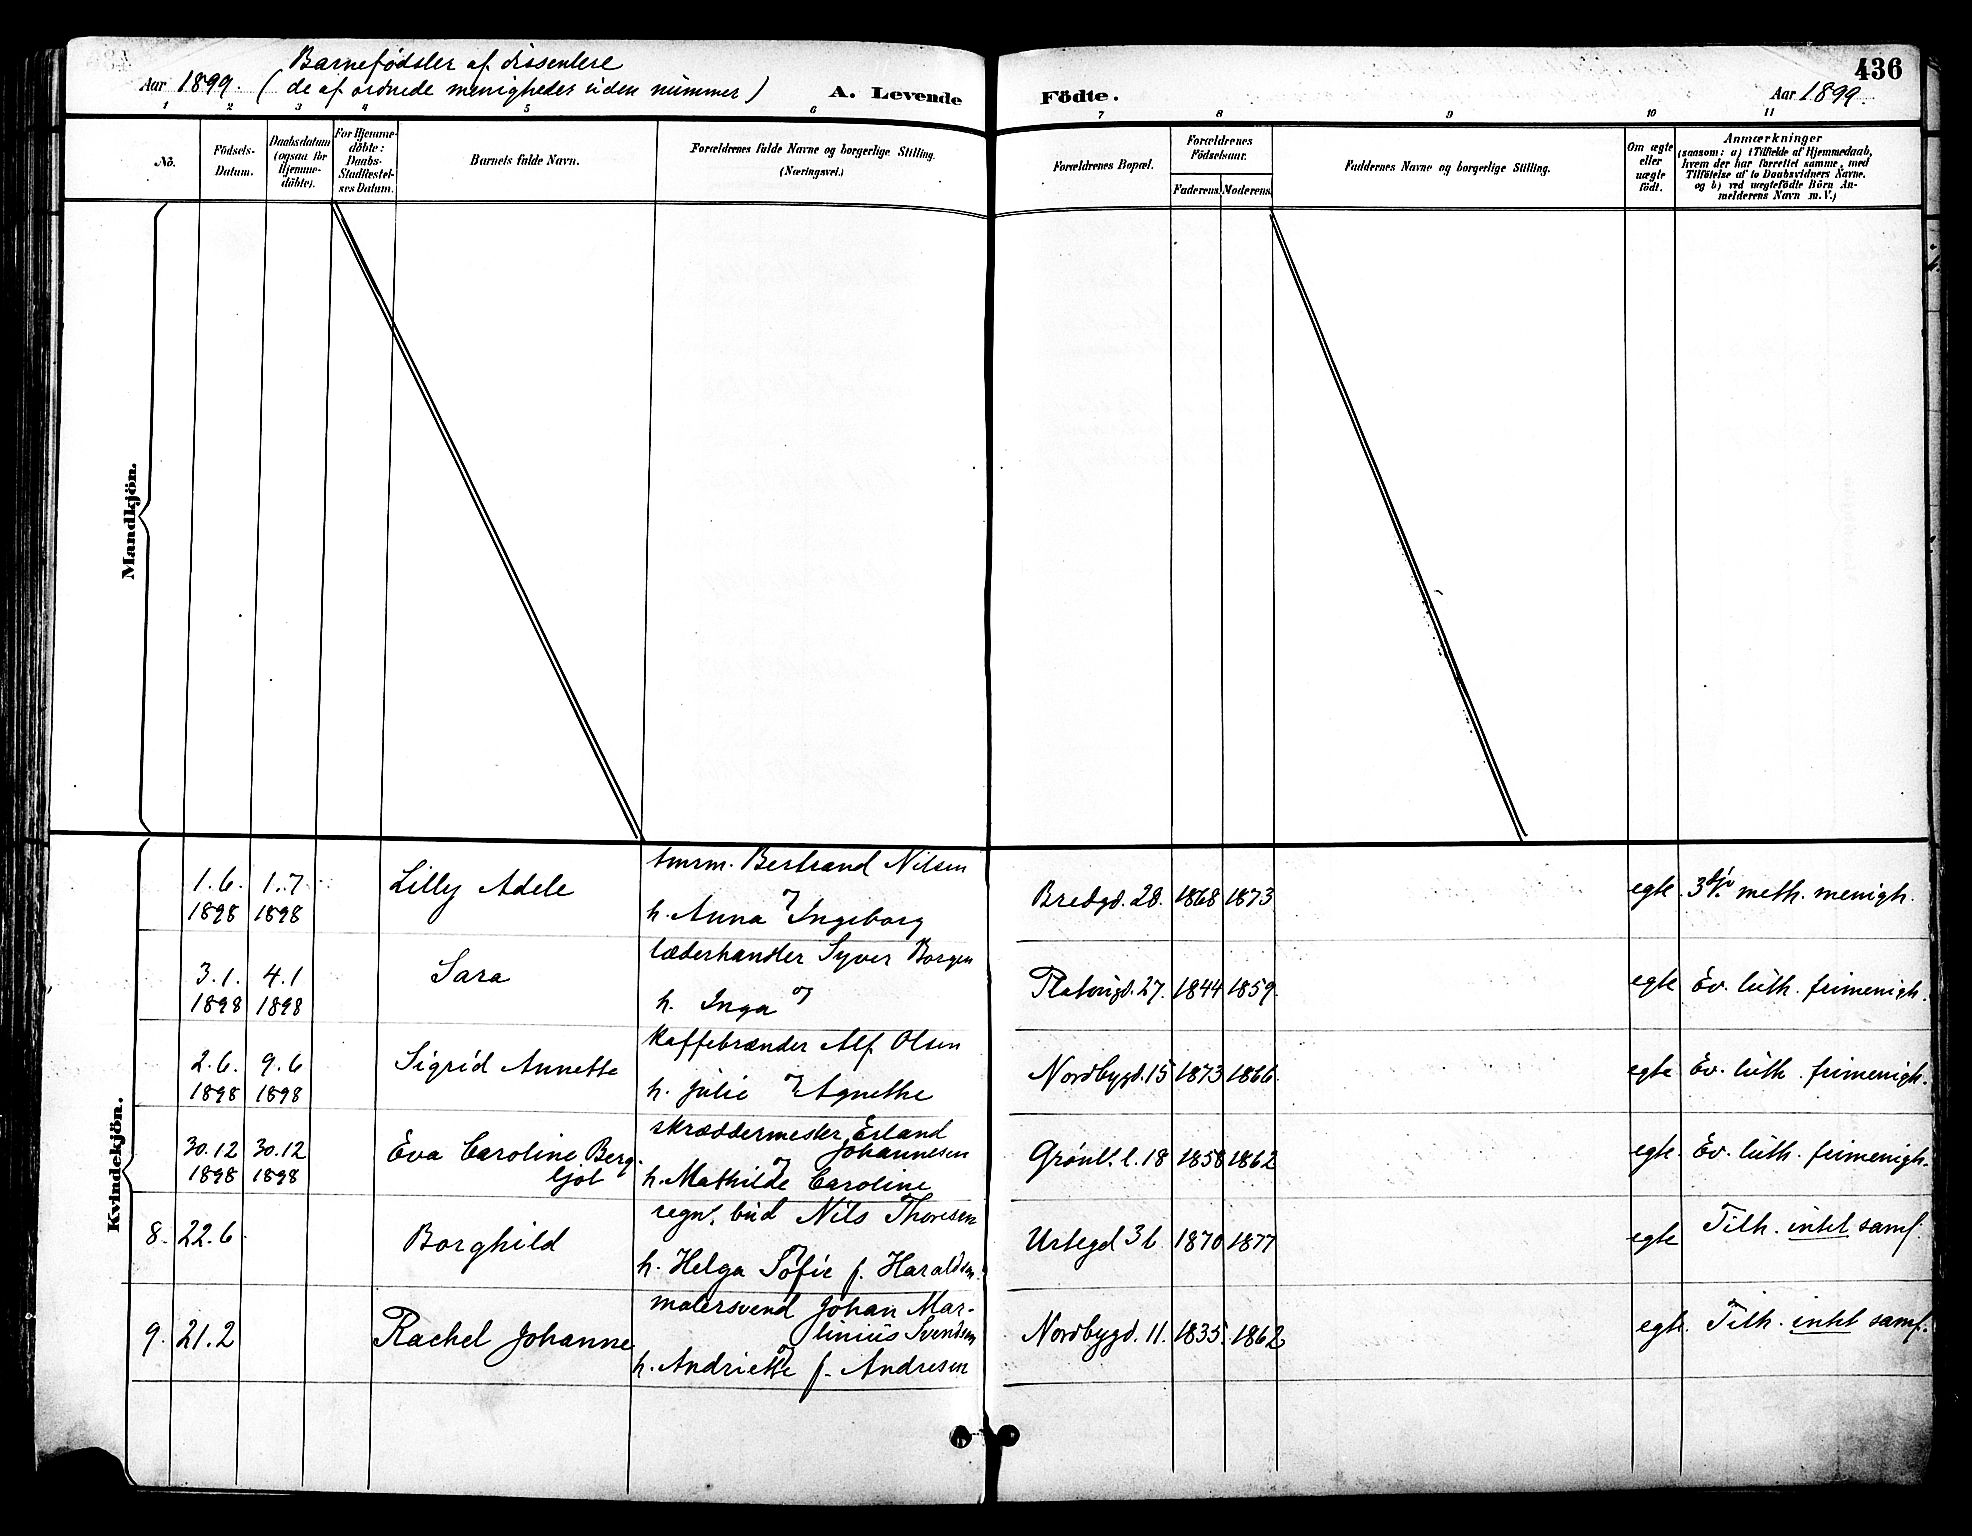 Barnefødsler af dissentere
Aar 1899. (de af ordnede menigheder uden nummer)
A. Levende Födte.
436
Aar 1899.
1 2 3 4 5 6 7 8 9 10 11
No.
Födsels-Datum.
Daabsdatum (ogsaa for Hjemmedöbte).
For Hjemmedöbte: Daabs-Stadfæstelses Datum.
Barnets fulde Navn.
Forældrenes fulde Navne og borgerlige Stilling.
(Næringsvei.)
Forældrenes Bopæl.
Forældrenes Födselsaar.
Faderens. Moderens.
Faddernes Navne og borgerlige Stilling.
Om ægte eller uægte födt.
Anmærkninger
(saasom: a) i Tilfælde af Hjemmedaab,
hvem der har forrettet samme, med
Tilföielse af to Daabsvidners Navne.
og b) ved uægtefödte Börn An-
melderens Navn m. V.)
Mandkjön.
Kvindekjön.
1.6. 1898 1.7 1898 Lilly Adele
tmrm. Bertrand Nilsen
og
h. Anna Ingeborg
Bredgd. 28. 1868 1873 egte meth. menigh.
3.1. 1898 4.1 1898 Sara
læderhandler Syver Borgen
og
h. Inga
Platougd. 27. 1844 1859. egte Ev. luth. frimenigh.
2.6. 1898 9.6 1898 Sigrid Annette
kaffebrænder Alf Olsen
og
h. Julie Agnethe
Nordbygd. 15 1873 1866. egte Ev. luth. frimenigh.
30.12 1898 30.12 1898 Eva Caroline Berg-
ljot
skræddermester Erland
Johannesen
og
h. Mathilde Caroline
Grønl. l. 18 1858 1862 egte. Ev. luth. frimenigh.
8. 22.6 Borghild
regn. bud Nils Thoresen
og
h. Helga Sofie f. Haraldsen.
Urtegd 1870 1877 egte Tilh. intet samf.
9. 21.2 Rachel Johanne
malersvend Johan Mar-
tinius Svendsen
og
h. Andriette f. Andresen
Nordbygd. 11. 1835. 1862 egte. Tilh. intet samf.